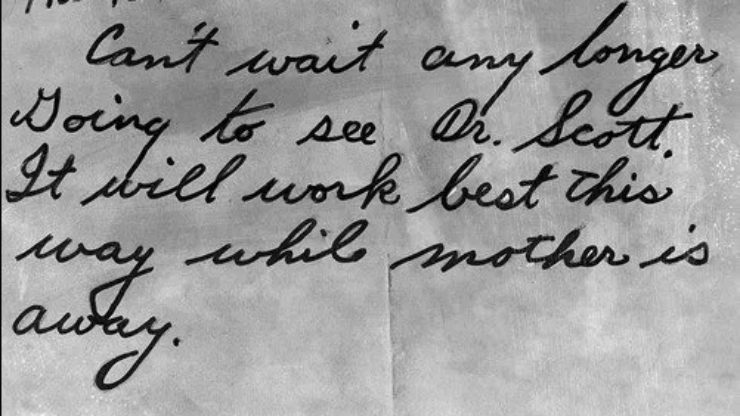 Can't wait any longer
Going to see Dr. Scott.
It will work best this
way while mother is
away.